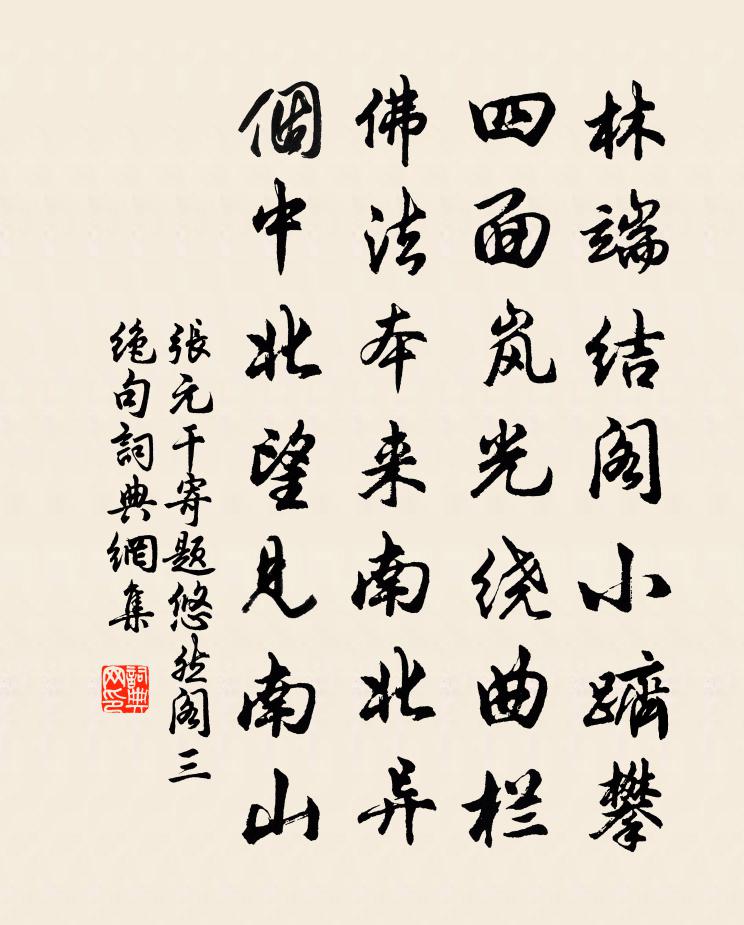 林端结阁小躋攀
四面岚光绕曲栏
佛法本来南北异
個中北望見南山
張元干寄题悠然阁三
绝句詞典網集
詞典
网印